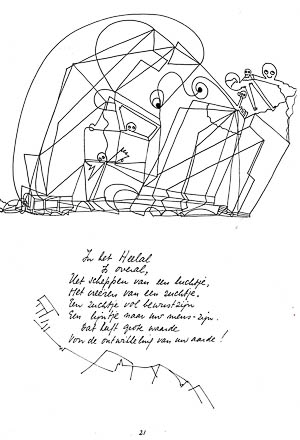 In het Heelal
Is overal,
Het scheppen van een luchtje,
Het creëren van een zuchtje.
Een zuchtje vol bewustzijn
Een lijntje naar uw mens-zijn.
Dat heeft grote waarde
Voor de ontwikkeling van uw aarde!
21